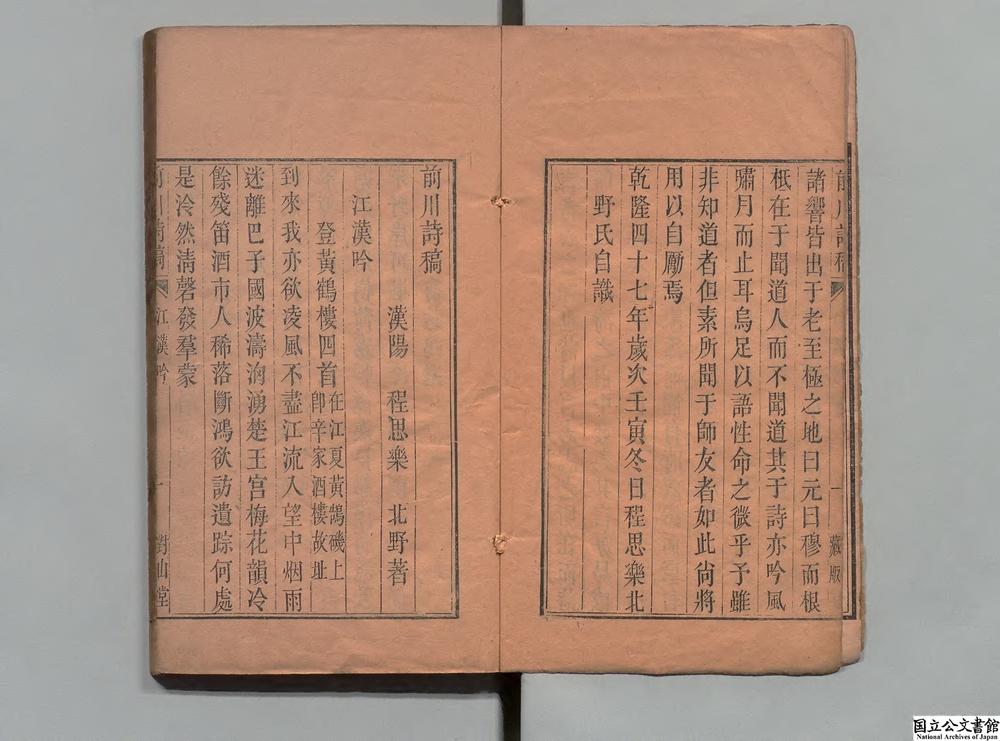 諸響皆出于老至極之地曰元曰穆而根
柢在于聞道人而不聞道其于詩亦吟風
嘯月而止耳烏足以語性命之微乎予雖
非知道者但素所聞于師友者如此尙將
用以自勵焉
乾隆四十七年歲次壬寅冬日程思樂北
野氏自識
前川詩稿
漢陽 程思樂 北野著
江漢吟
登黃鶴樓四首
在江夏黃鵠磯上
卽辛家酒樓故址
到來我亦欲凌風不盡江流入望中烟雨
迷離巴子國波濤洶湧楚王宮梅花韻冷
餘殘笛酒市人稀落斷鴻欲訪遺踪何處
是泠然淸磬發羣蒙
前川詩稿 江漢吟 樹仙堂
藏版
国立公文書館
National Archives of Japan